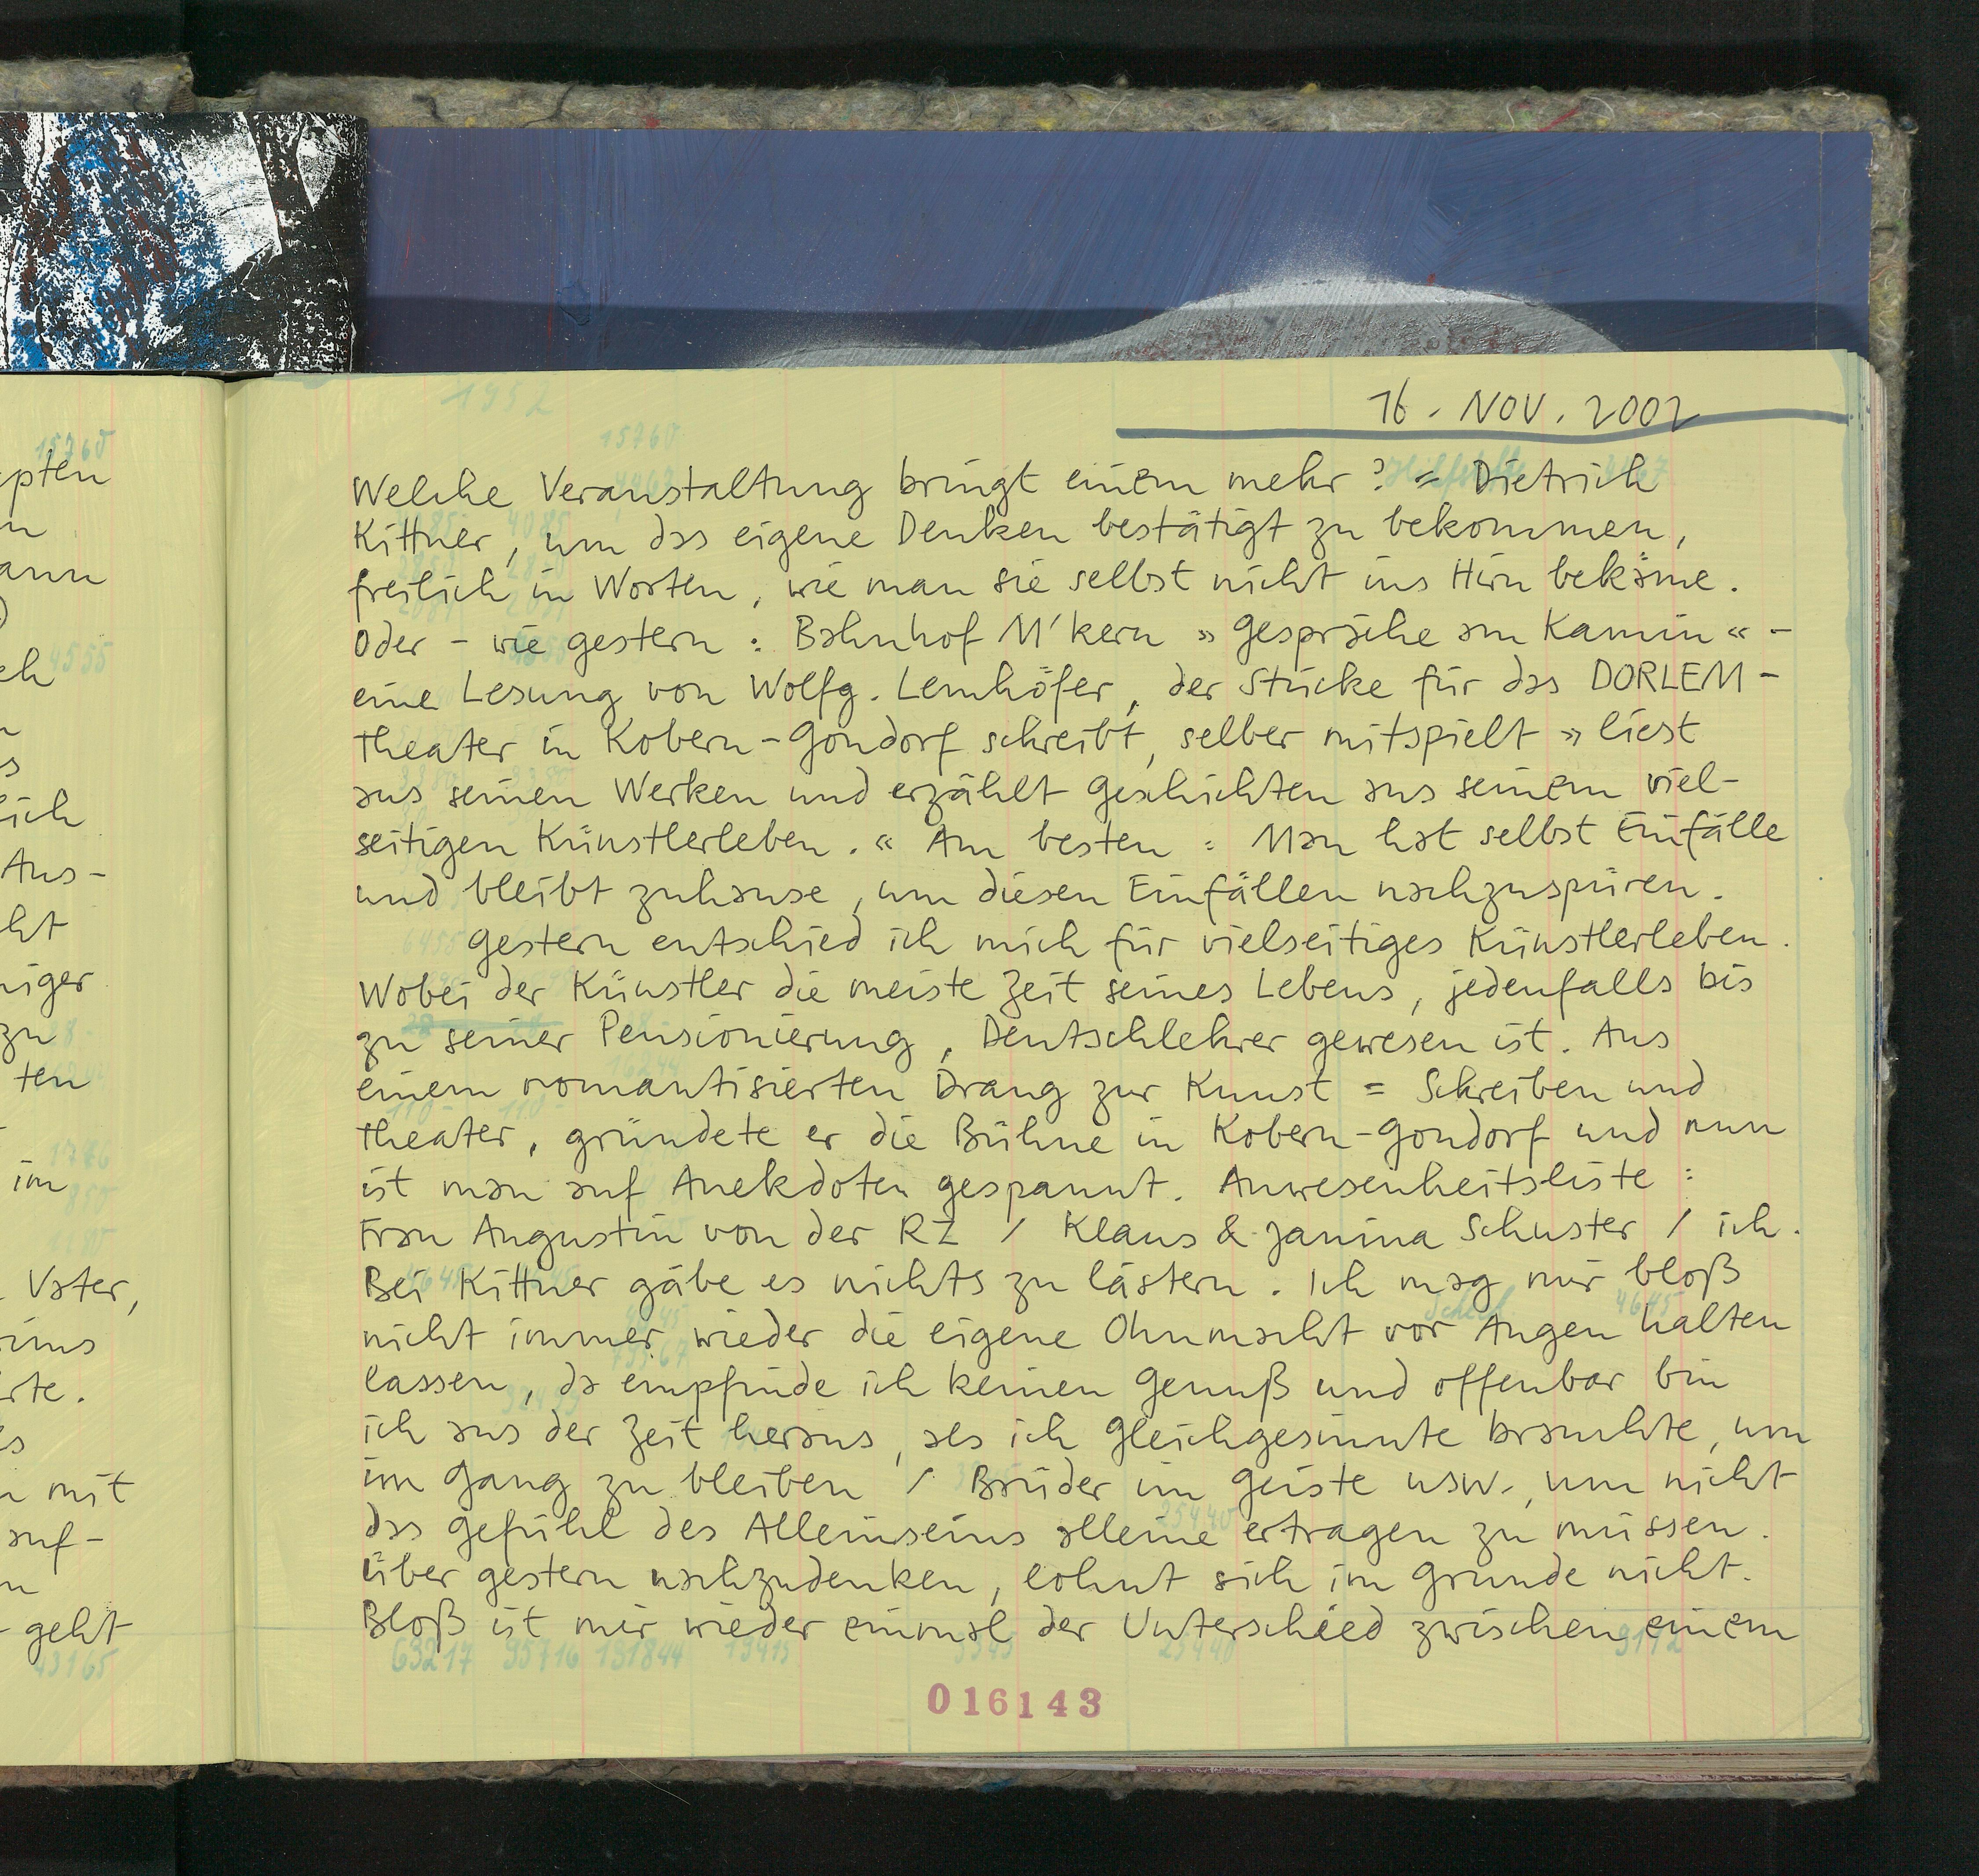 15760
epten
n
ann
)
4555
ch
n
s
eich
Aus-
cht
niger
zu 8-
ten
1776
im
850
1180
Vater,
eims
rte.
es
n mit
auf-
n
geht
43165
1952
15760
16. NOV. 2002
Welche Veranstaltung bringt einem mehr? = Dietrich
Kittner, um das eigene Denken bestätigt zu bekommen,
freilich in Worten, wie man sie selbst nicht ins Hirn bekäme.
Oder - wie gestern: Bahnhof M'kern »Gespräche am Kamin« -
eine Lesung von Wolfg. Lemhöfer, der Stücke für das DORLEM-
Theater in Kobern-Gondorf schreibt, selber mitspielt »liest
aus seinen Werken und erzählt Geschichten aus seinem viel-
seitigen Künstlerleben.« Am besten: Man hat selbst Einfälle
und bleibt zuhause, um diesen Einfällen nachzuspüren.
Gestern entschied ich mich für vielseitiges Künstlerleben.
Wobei der Künstler die meiste Zeit seines Lebens, jedenfalls bis
zu seiner Pensionierung, Deutschlehrer gewesen ist. Aus
einem romantisierten Drang zur Kunst = Schreiben und
Theater, gründete er die Bühne in Kobern-Gondorf und nun
ist man auf Anekdoten gespannt. Anwesenheitsliste:
Frau Augustin von der RZ / Klaus & Janina Schuster / ich.
Bei Kittner gäbe es nichts zu lästern. Ich mag mir bloß
nicht immer wieder die eigene Ohnmacht vor Augen halten
lassen, da empfinde ich keinen Genuß und offenbar bin
ich aus der Zeit heraus, als ich Gleichgesinnte brauchte, um
im Gang zu bleiben / Brüder im Geiste usw., um nicht
das Gefühl des Alleinseins alleine ertragen zu müssen.
Über gestern nachzudenken, lohnt sich im Grunde nicht.
Bloß ist mir wieder einmal der Unterschied zwischen einem
63217 95716 131844 13415 25440
016143